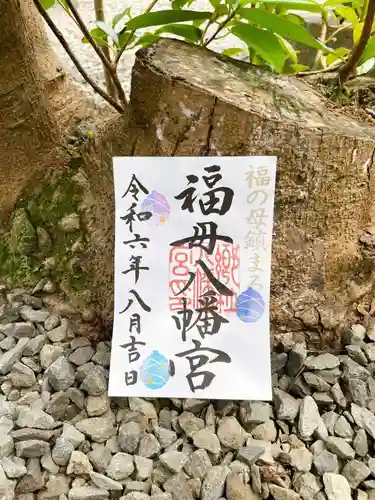 福の母鎮まる
福母八幡宮
令和六年八月吉日